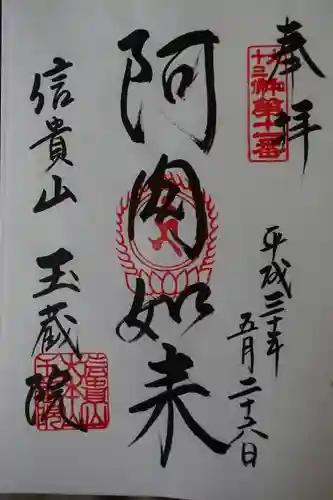 奉拝
大和十三佛第十一番
平成三十年
五月二十六日
阿閦如来
信貴山 玉蔵院